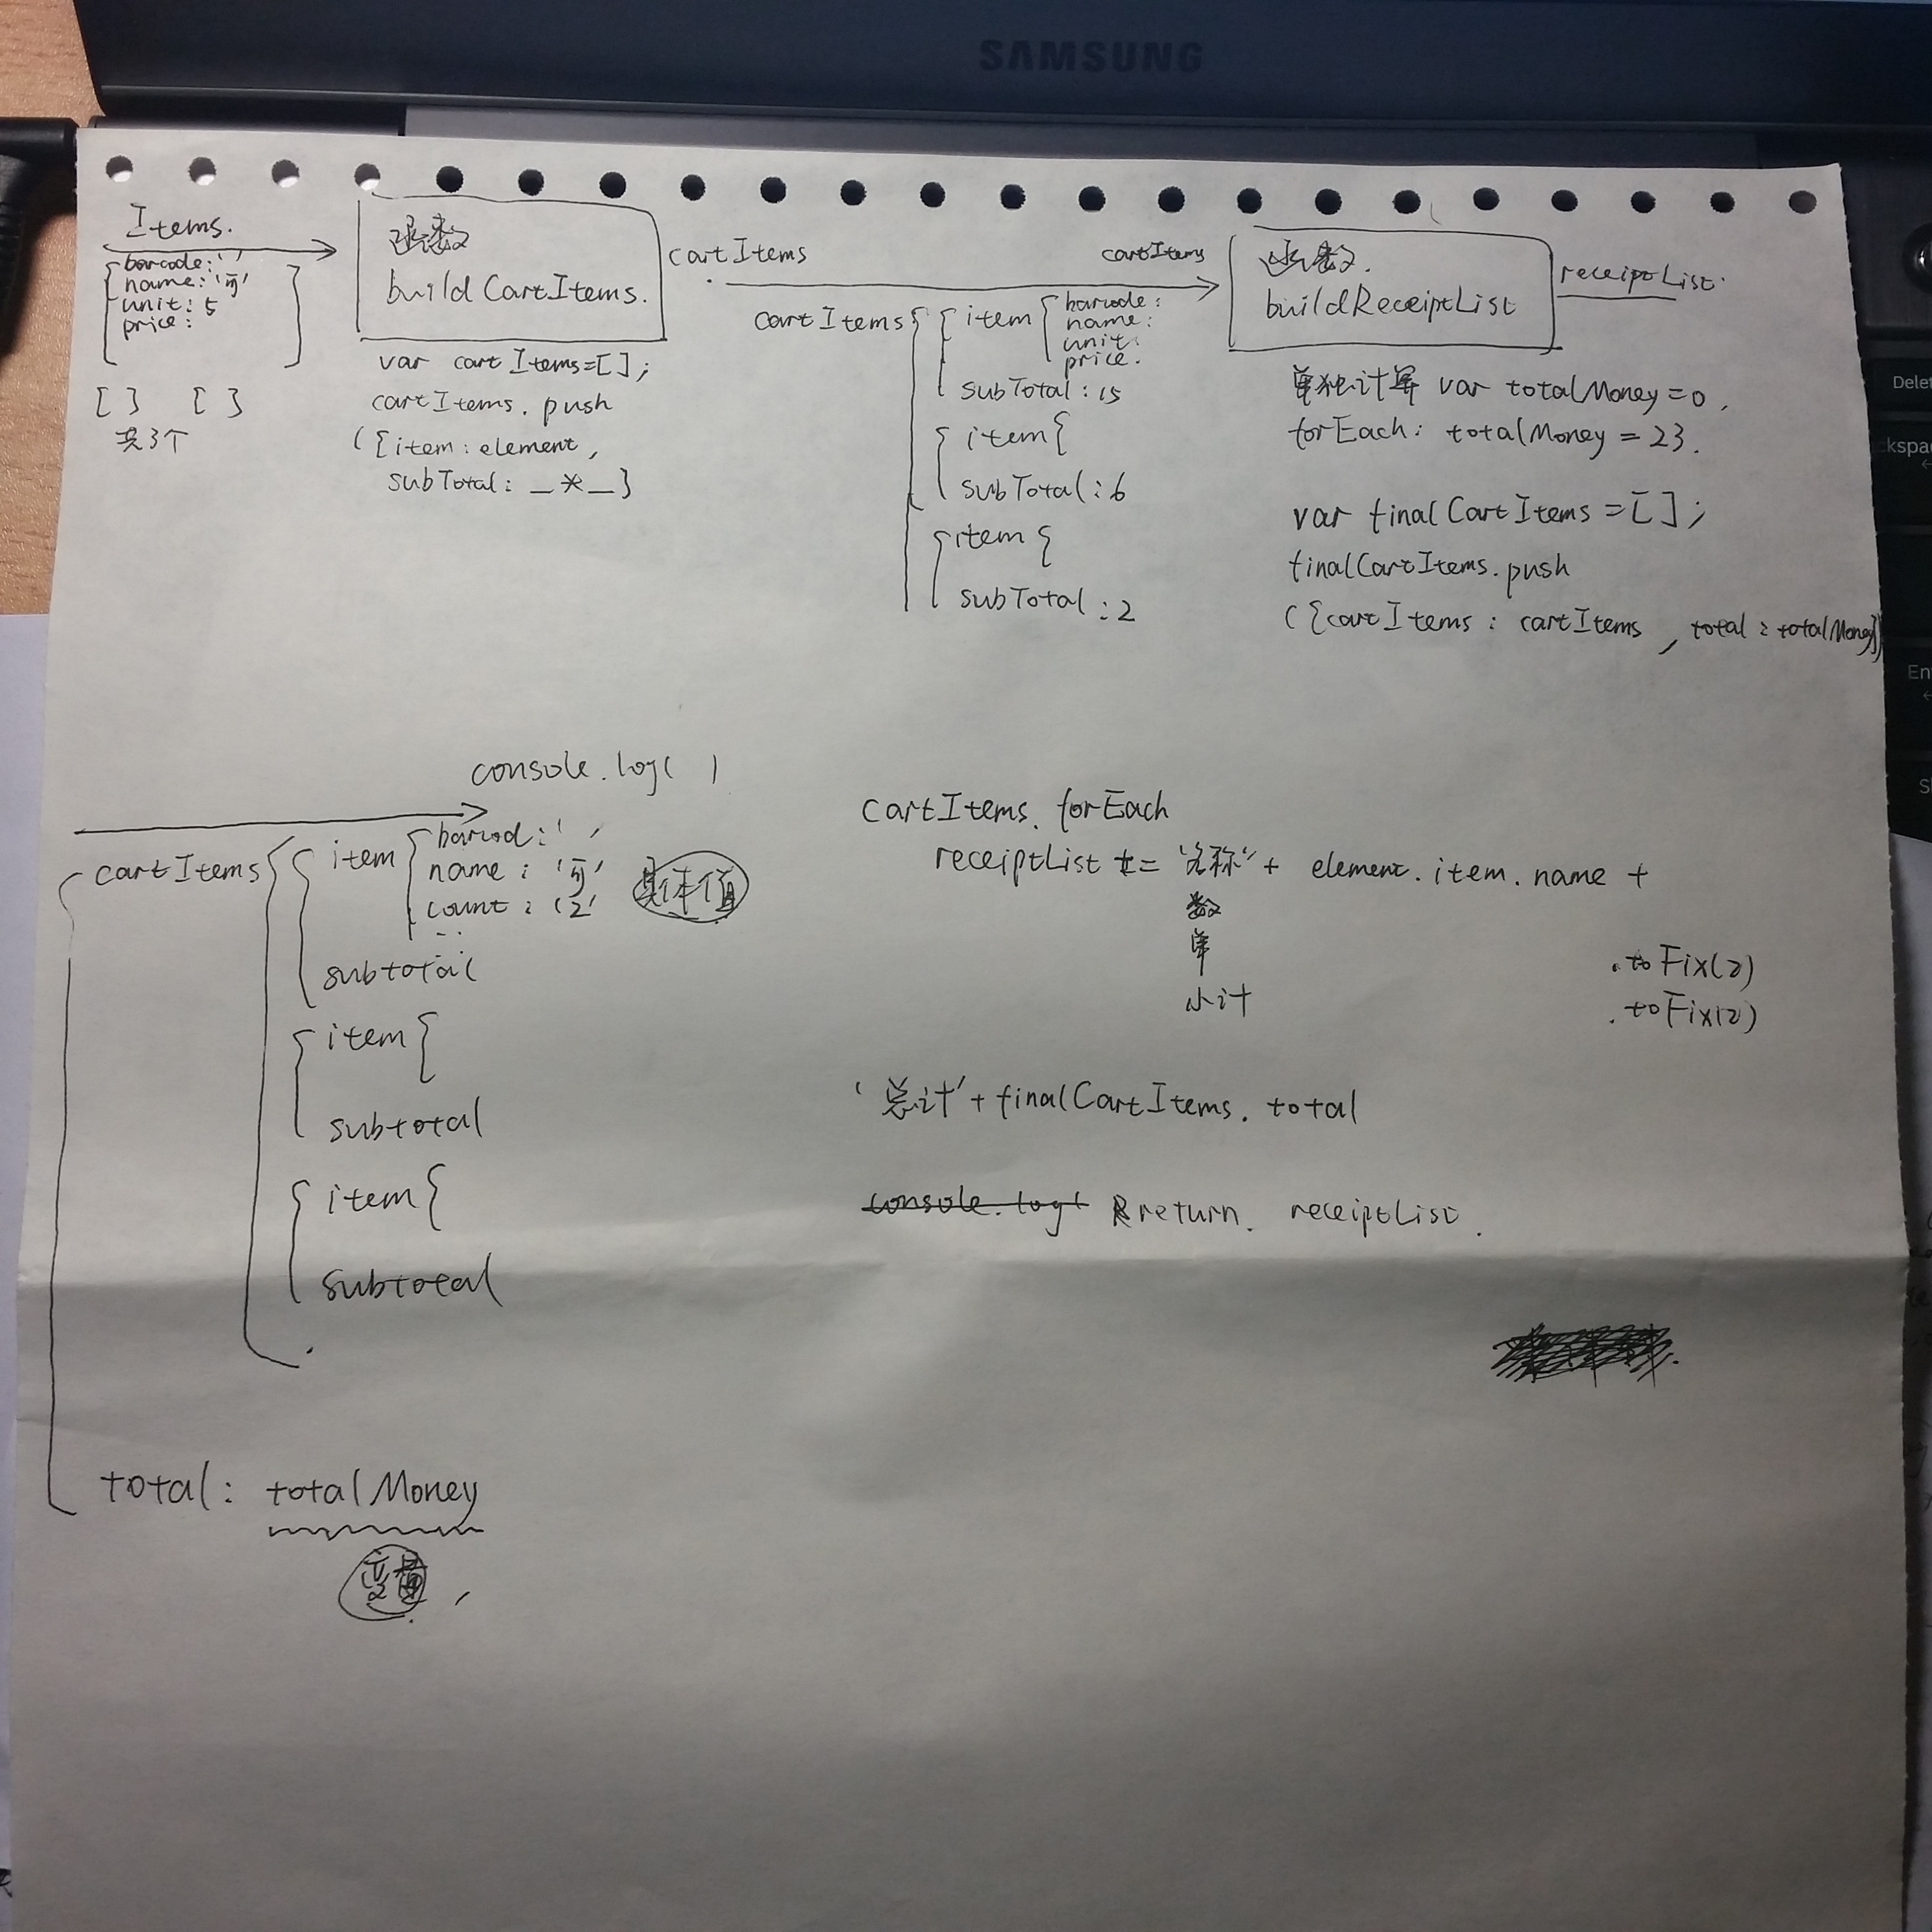 SAMSUNG
Items.
barcode: ' '
name: '可'
unit: 5
price:
[ ] [ ]
共3个
函数
buildCartItems.
var cartItems=[];
cartItems.push
({item: element,
subTotal: _*_}
cartItems
cartItems
cartItems
item
barcode:
name:
unit:
price.
subTotal: 15
item{
subTotal: 6
item{
subTotal: 2
函数.
buildReceiptList
receiptList.
单独计算 var totalMoney=0,
forEach: totalMoney = 23.
var finalCartItems =[];
finalCartItems.push
({cartItems: cartItems, total: totalMoney})
Delet
ckspa
En
console.log( )
cartItems
item
barcod: ' ,
name: '可'
count: '2'
...
具体值
subtotal
item{
subtotal
item{
subtotal
total: totalMoney
变量,
cartItems. forEach
receiptList += '名称' + element.item.name +
数
单 .toFix(2)
小计 .toFix(2)
'总计' + finalCartItems. total
console.log( return. receiptList.